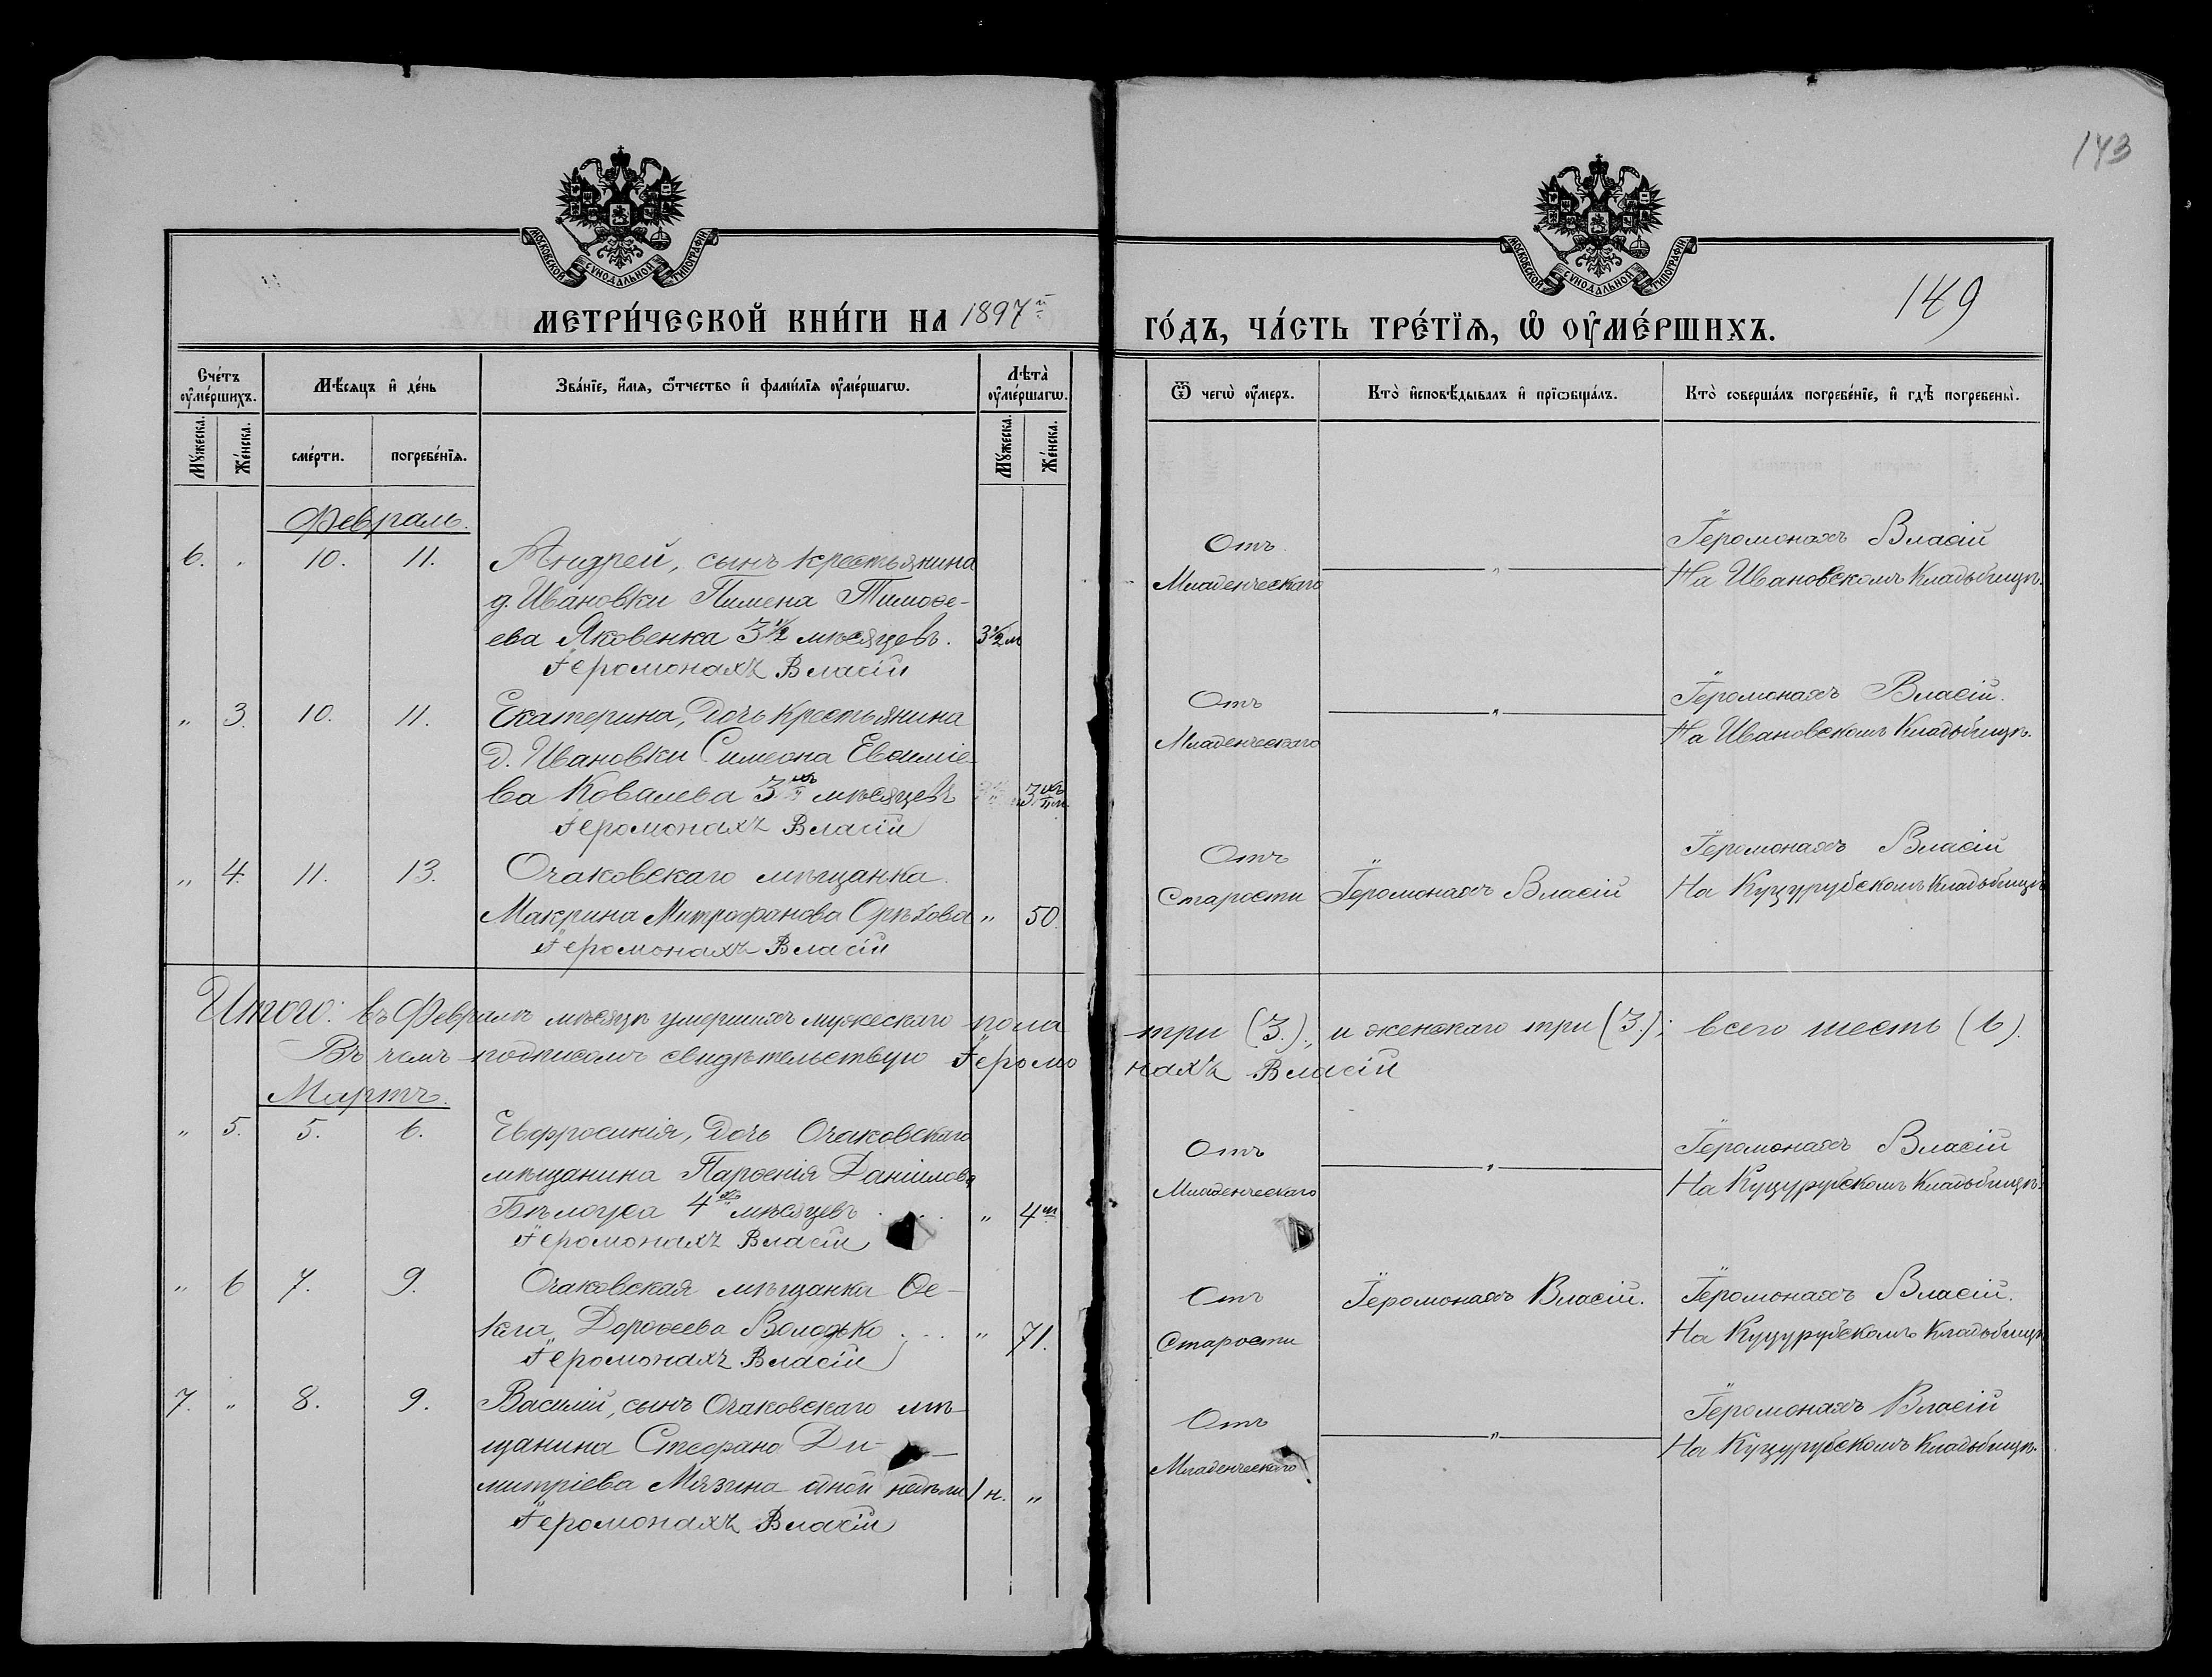 143
149
МОСКОВСКОЙ СУНОДАЛЬНОЙ ТИПОГРАФІИ
МОСКОВСКОЙ СУНОДАЛЬНОЙ ТИПОГРАФІИ
МЕТРИ́ЧЕСКОЙ КНИ́ГИ НА 1897й
ГО́ДЪ, ЧА́СТЬ ТРЕ́ТІѦ, Ѽ ОУ҆МЕ́РШИХЪ.
Сче́тъ оу҆ме́ршихъ.
Мѣ́сяцъ и҆ де́нь
Зва́нїе, и҆́мѧ, ѻ҆́тчество и҆ фами́лїѧ оу҆ме́ршагѡ.
Лѣ́та оу҆ме́ршагѡ.
Ѿ чегѡ̀ оу҆́меръ.
Кто̀ и҆сповѣ́дывалъ и҆ прїѡбща́лъ.
Кто̀ соверша́лъ погребе́нїе, и҆ гдѣ̀ погребены̀.
Му́жеска.
Же́нска.
сме́рти.
погребе́нїѧ.
Му́жеска.
Же́нска.
Февраль.
6. . 10. 11. Андрей, сынъ крестьянина
д. Ивановки Пимена Тимоѳе-
ева Яковенка 3½ мѣсяцевъ. 3½ м
Іеромонахъ Власій
Отъ
Младенческаго
"
Іеромонахъ Власій
На Ивановскомъ Кладбищѣ.
" 3. 10. 11. Екатерина, дочь крестьянина
д. Ивановки Симеона Евѳиміе-
ва Ковалева 3хъ мѣсяцевъ " 3хъ м.
Іеромонахъ Власій
Отъ
Младенческаго
"
Іеромонахъ Власій.
На Ивановскомъ Кладбищѣ.
" 4. 11. 13. Очаковскаго мѣщанка
Макрина Митрофанова Орѣхова " 50.
Іеромонахъ Власій
Отъ
Старости
Іеромонахъ Власій
Іеромонахъ Власій
На Куцурубскомъ Кладбищѣ
Итого: въ Февралѣ мѣсяцѣ умершихъ мужескаго пола три (3.), и женскаго три (3.); всего шесть (6).
Въ чемъ подписомъ свидѣтельствую Іеромонахъ Власій
Мартъ.
" 5. 5. 6. Евфросинія, дочь Очаковскаго
мѣщанина Парѳенія Даніилова
Бѣлоуса 4хъ мѣсяцевъ . . . " 4 м
Іеромонахъ Власій
Отъ
Младенческаго
"
Іеромонахъ Власій
На Куцурубскомъ Кладбищѣ.
" 6 7. 9. Очаковская мѣщанка Ѳе-
кла Дороѳеева Володько . . . " 71.
Іеромонахъ Власій
Отъ
Старости
Іеромонахъ Власій.
Іеромонахъ Власій.
На Куцурубскомъ Кладбищѣ
7. " 8. 9. Василій, сынъ Очаковскаго мѣ-
щанина Стефана Ди-
митріева Мязина одной недѣли 1 н. "
Іеромонахъ Власій
Отъ
Младенческаго
"
Іеромонахъ Власій
На Куцурубскомъ Кладбищѣ.